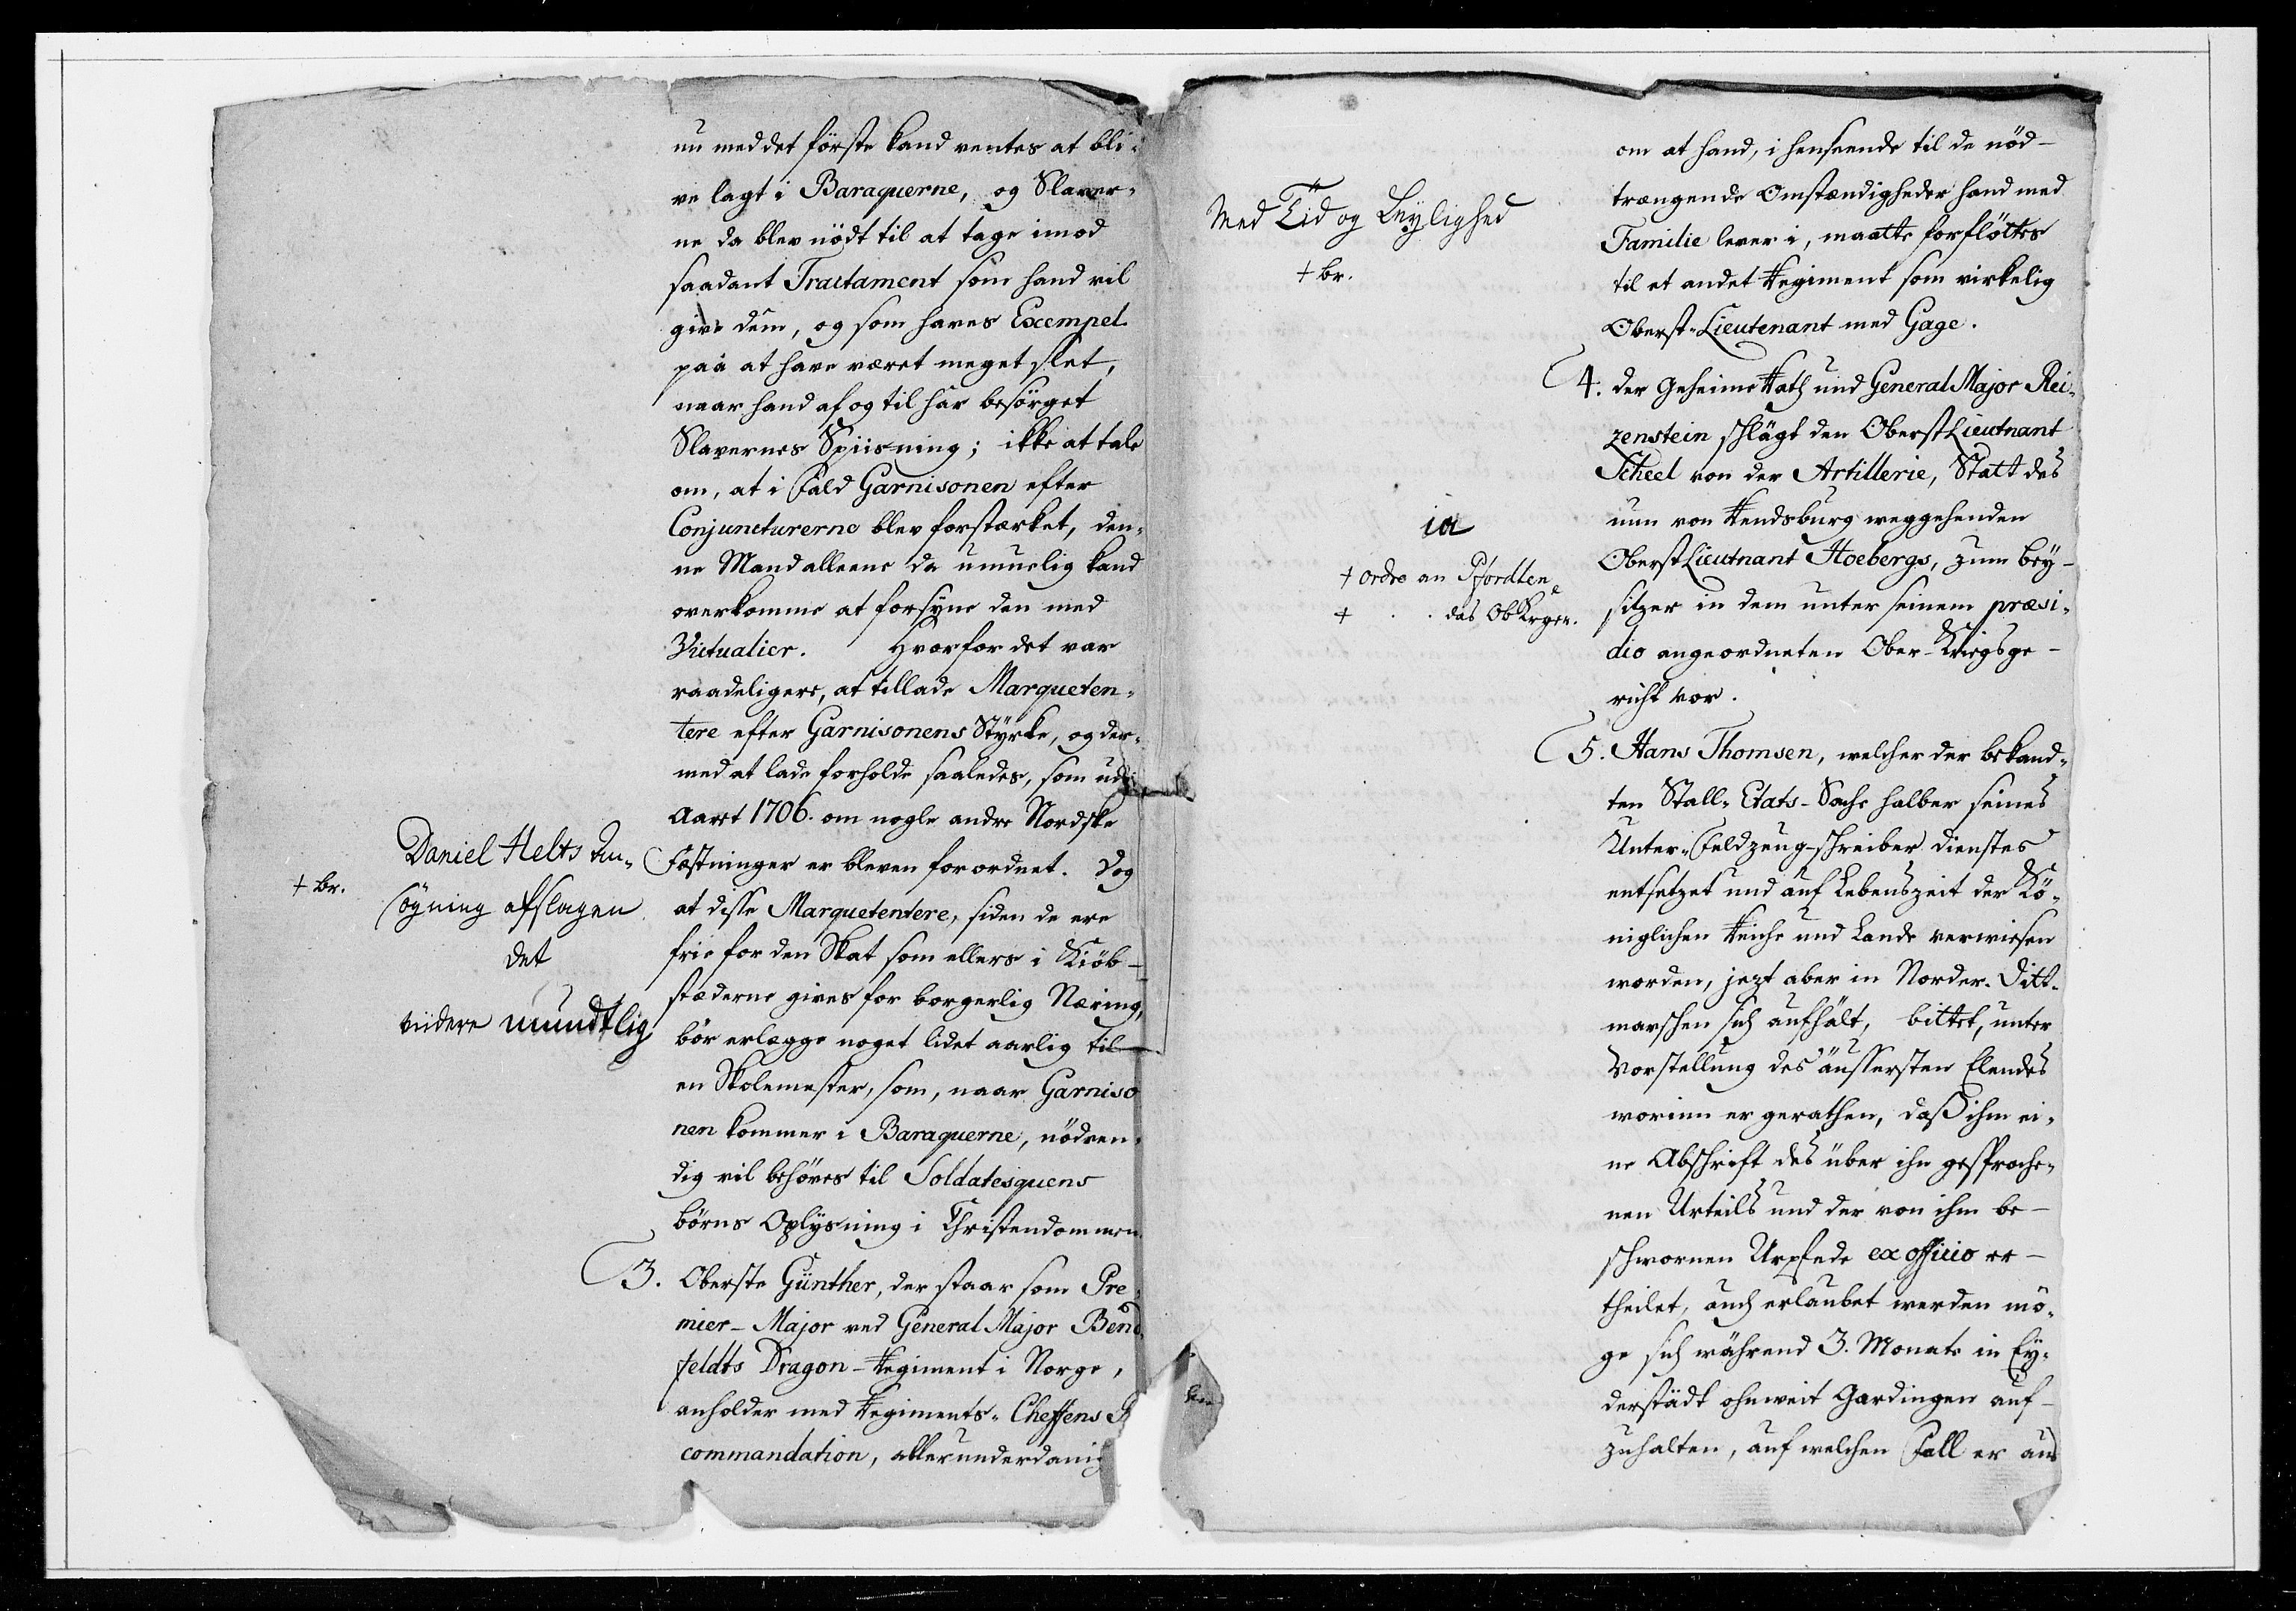 nu med det förste kand ventes at bli-
ve lagt i Baraquerne, og Slaver-
ne da blev nödt til at tage imod
saadant Tractament som hand vil
give dem, og som haves Exempel
paa at have været meget slet,
naar hand af og til har besörget
Slavernes Spiisning; ikke at tale
om, at i Fald Garnisonen efter
Conjuncturerne blev forstærket, den-
ne Mand alleene da umuelig kand
overkomme at forsyne den med
Victualier. Hvorfor det var
raadeligere, at tillade Marqueten-
tere efter Garnisonens Styrke, og der-
med at lade forholde saaledes, som udi
Aaret 1706. om nogle andre Nordske
Fæstninger er bleven forordnet. Dog
at disse Marquetentere, siden de ere
frie for den Skat som ellers i Kiöb-
stæderne gives for borgerlig Næring,
bör erlægge noget lidet aarlig til
en Skolemester, som, naar Garniso
nen kommer i Baraquerne, nödven-
dig vil behöves til Soldatesquens
börns Oplysning i Christendommen.
Daniel Helts An-
+ br.
sögning afslagen
det
viidere mundtlig
3. Oberste Günther, der staar som Pre-
mier-Major ved General Major Bend
feldts Dragon-Regiment i Norge,
anholder med Regiments-Cheffens R
commandation, allerunderdanig
om at hand, i henseende til de nöd-
trængende Omstændigheder hand med
Familie lever i, maatte forflöttes
til et andet Regiment som virkelig
Oberst-Lieutenant med Gage.
Med Tid og Leylighed
+ br.
4. Der Geheime Rath und General Major Rei-
zenstein schlägt den Oberst Lieutnant
Scheel von der Artillerie, Statt des
nun von Rendsburg weggehenden
Oberst Lieutnant Hoebergs, zum Bey-
sitzer in dem unter seinem præsi-
dio angeordneten Ober-Kriegsge-
richt vor.
ia
+ ordre an Pfordten
+ . . das Ob Krger.
5. Hans Thomsen, welcher der bekand-
ten Stall-Etats-Sache halber seines
Unter-Feldzeug-schreiber Dienstes
entsetzet und auf Lebenszeit der Kö-
niglichen Reiche und Lande verwiesen
worden, jezt aber in Norder-Ditt-
marschen sich aufhält, bittet, unter
Vorstellung des äussersten Elendes
worinn er gerathen, daß ihm ei-
ne Abschrift des über ihn gesproche-
nen Urteils und der von ihm be-
schwornen Urpfede ex officio er-
theilet, auch erlaubet werden mö-
ge sich während 3. Monate in Ey-
derstädt ohnweit Gardingen auf-
zuhalten, auf welchen Fall er aus